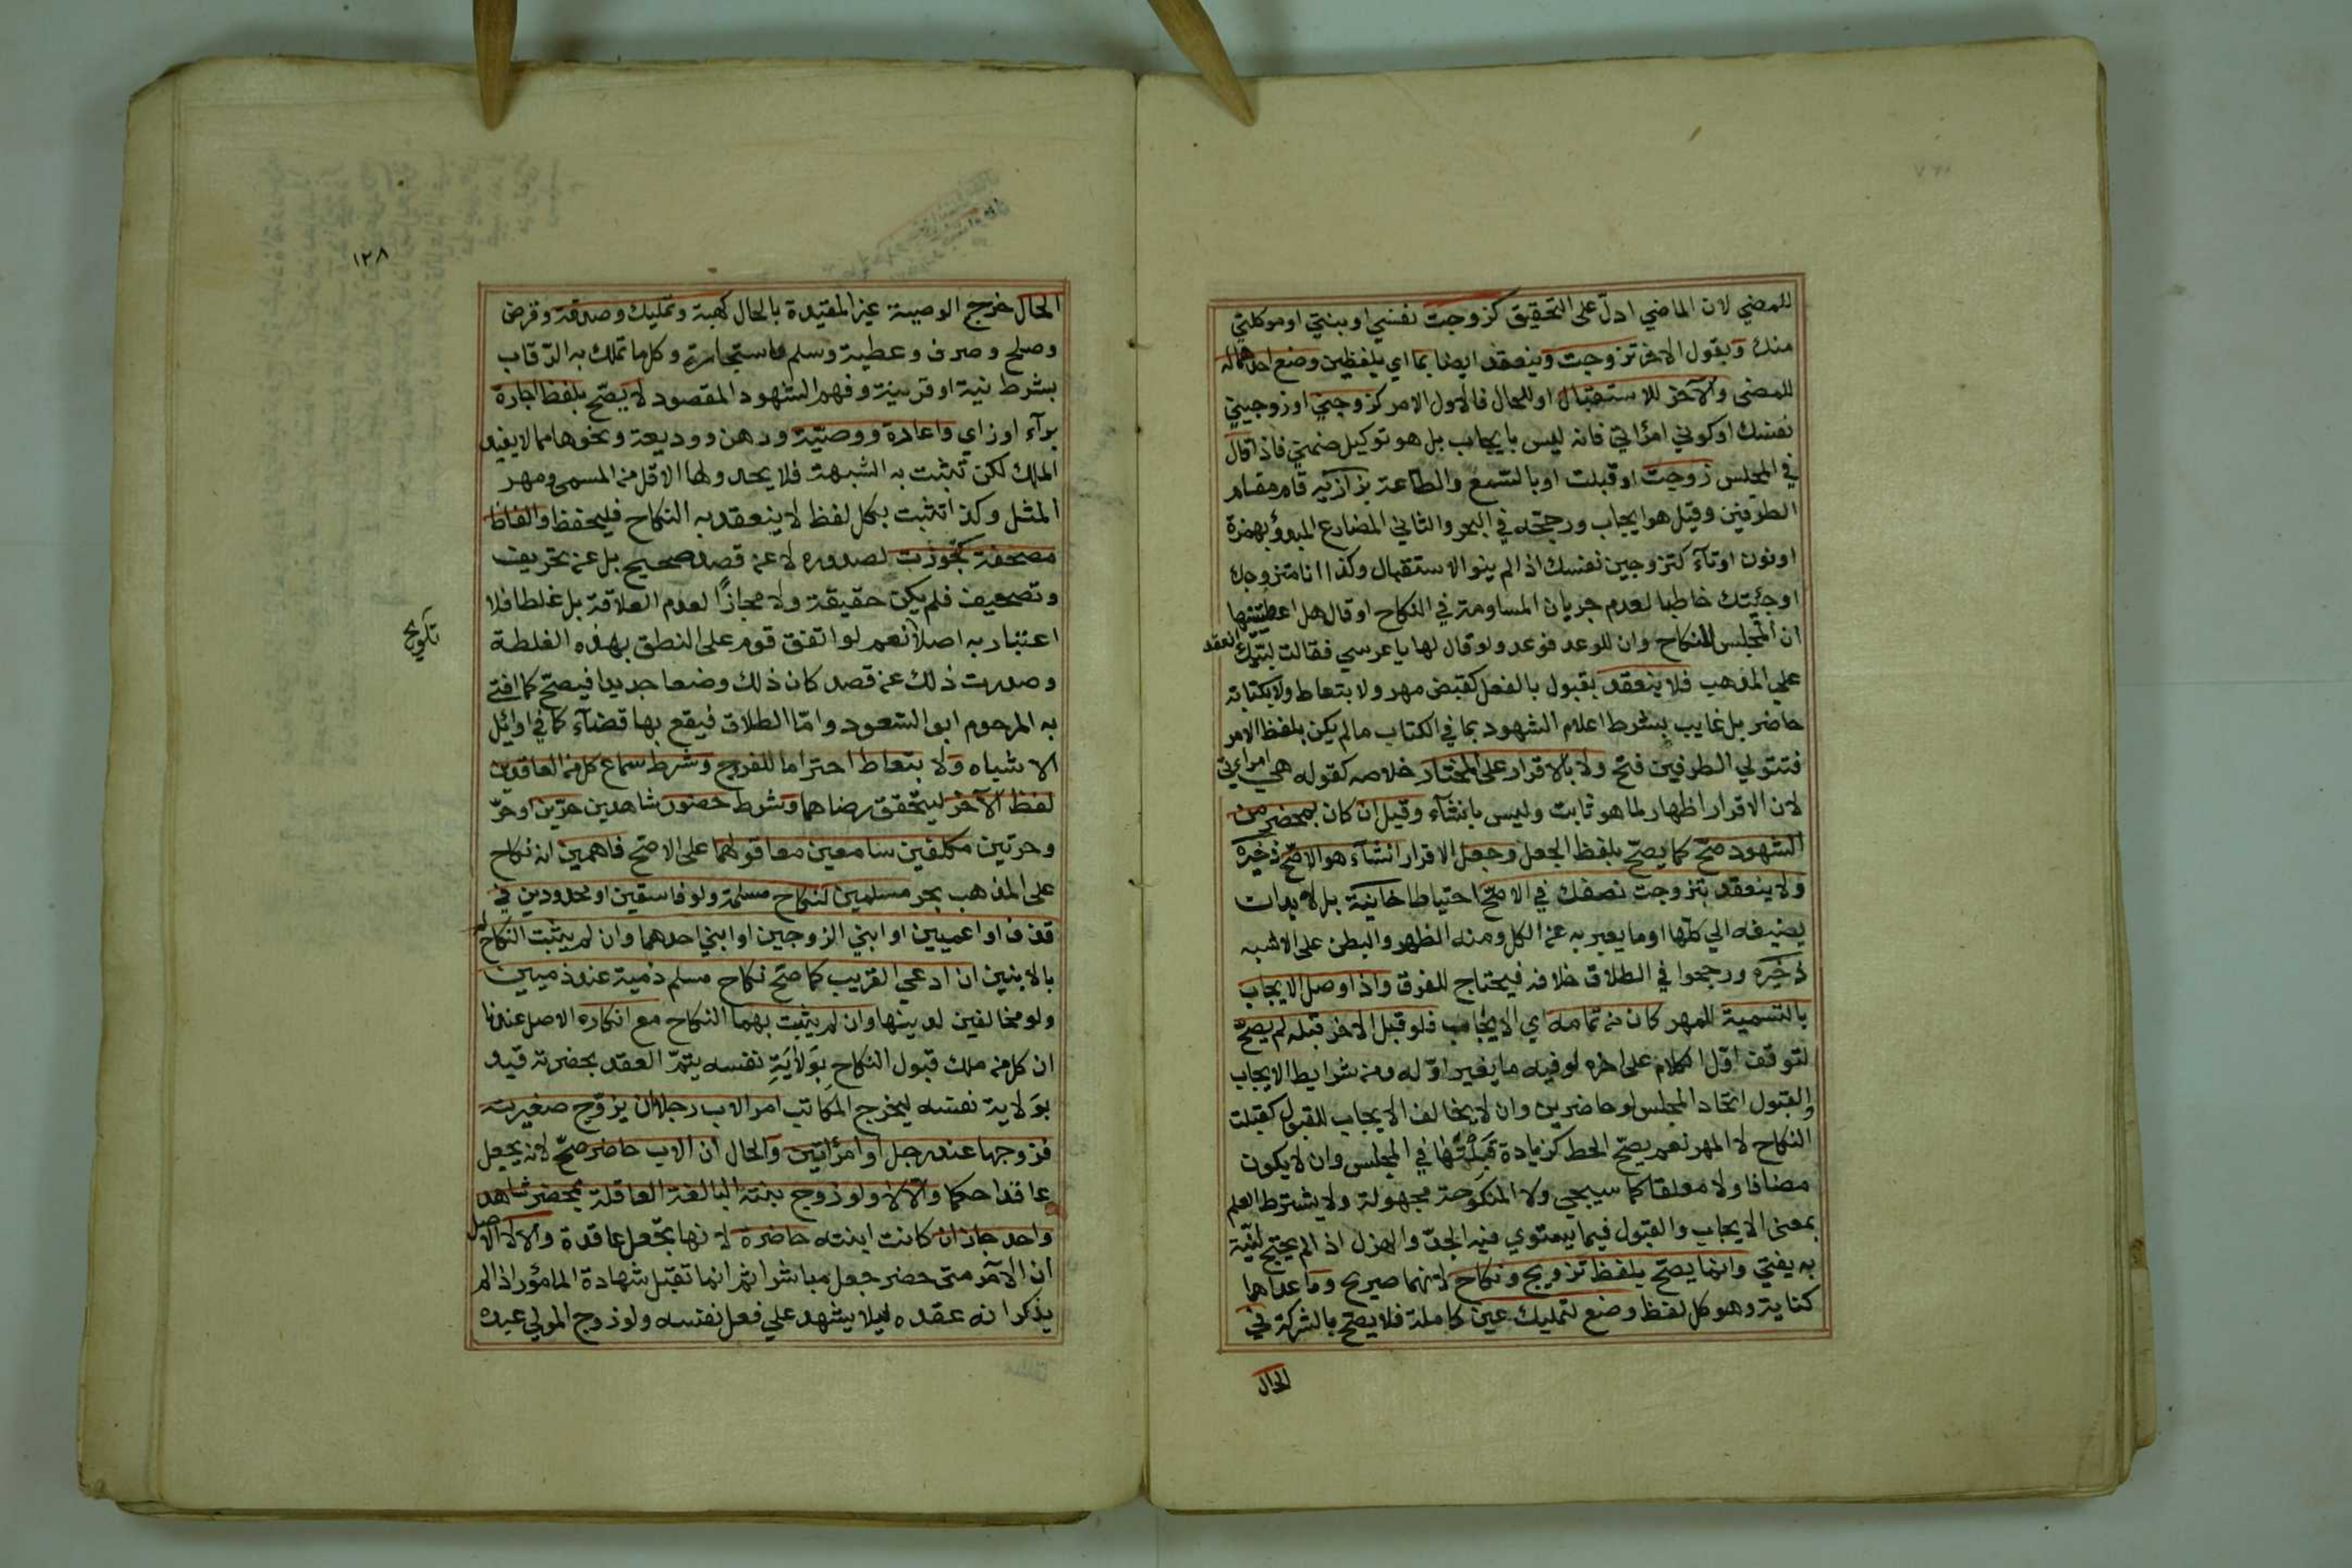 للمضي لان الماضي ادلّ على التحقيق كزوجت نفسي او بنتي او موكلتي
منك ويقول الاخر تزوجت وينعقد ايضا بما اي بلفظين وضع احدهما له
للمضي والآخر للاستقبال او للحال فالاول الامر كزوجني او زوجيني
نفسك او كوني امراتي فانه ليس بايجاب بل هو توكيل ضمني فاذا قال
في المجلس زوجت او قبلت او بالسّمع والطاعة بزازيه قام مقام
الطرفين وقيل هو ايجاب ورجحه في البحر والثاني المضارع المبدوؤ بهمزة
او نون او تآء كتزوجين نفسك اذا لم ينو الاستقبال وكذا انا متزوجك
او جئيتك خاطبا لعدم جريان المساومة في النكاح او قال هل اعطيتنيها
ان المجلس للنكاح وان للوعد فوعد ولو قال لها يا عرسي فقالت لبّيك انعقد
على المذهب فلا ينعقد بقبول بالفعل كقبض مهر ولا بتعاط ولا بكتابة
حاضر بل غايب بشرط اعلام الشهود بما في الكتاب ما لم يكن بلفظ الامر
فتتولي الطرفين فتح ولا بالاقرار على المختار خلاصه كقوله هي امراءتي
لان الاقرار اظهار لما هو ثابت وليس بانشآء وقيل ان كان بمحضر من
الشهود صحّ كما يصحّ بلفظ الجعل وجعل الاقرار انشآء هو الاصّح ذخيره
ولا ينعقد بتزوجت نصفك في الاصّح احتياطا خانية بل لا بد ان
يضيفه الي كلّها او ما يعبر به عن الكل ومنه الظهر والبطن على الاشبه
ذخيره ورجحوا في الطلاق خلافه فيحتاج للفرق واذا وصل الايجاب
بالتسمية للمهر كان من تمامه اي الايجاب فلو قبل الاخر قبله لم يصحّ
لتوقف اوّل الكلام على اخره لو فيه ما يغير اوّله ومن شرايط الايجاب
والقبول اتحاد المجلس لو حاضرين وان لا يخالف الايجاب للقبول كقبلت
النكاح لا المهر نعم يصحّ الحط كزيادة قبلتها في المجلس وان لا يكون
مضافا ولا معلقا كما سيجي ولا المنكوحة مجهولة ولا يشترط العلم
بمعنى الايجاب والقبول فيما يستوي فيه الجدّ والهزل اذ لم يحتج لنيّة
به يفتي وانما يصحّ بلفظ تزويج ونكاح لانهما صريح وما عداهما
كناية وهو كل لفظ وضع لتمليك عين كاملة فلا يصّح بالشركة في
الحال
١٢٨
الحال خرج الوصية غير المقيدة بالحال كهبة وتمليك وصدقة وقرض
وصلح وصرف وعطية وسلم واستيجار وكل ما تملك به الرّقاب
بشرط نية او قرينة وفهم الشهود المقصود لا يصّح بلفظ اجارة
برآء او زاي واعارة ووصيّة ورهن ووديعة ونحوها مما لا يفيد
الملك لكن تثبت به الشبهة فلا يحد ولها الاقل من المسمى ومهر
المثل وكذا تثبت بكل لفظ لا ينعقد به النكاح فليحفظ والفاظ
مصحفة كتجوزت لصدوره لا عن قصد صحيح بل عن تحريف
وتصحيف فلم يكن حقيقة ولا مجازًا لعدم العلاقة بل غلطا فلا
اعتبار به اصلا نعم لو اتفق قوم على النطق بهذه الغلطة
تلويح
وصدرت ذلك عن قصد كان ذلك وضعا جديدا فيصّح كما افتى
به المرحوم ابو السّعود وامّا الطلاق فيقع بها قضآء كما في اوائل
الاشباه ولا بتعاط احتراما للفروج وشرط سماع كل من العاقدين
لفظ الآخر ليتحقق رضاهما وشرط حضور شاهدين حرّين او حرّ
وحرتين مكلفين سامعين معا قولهما على الاصّح فاهمين انه نكاح
على المذهب بحر مسلمين لنكاح مسلمة ولو فاسقين او محدودين في
قذف او اعميين او ابني الزوجين او ابني احدهما وان لم يثبت النكاح
بالابنين ان ادعى القريب كما صّح نكاح مسلم ذمية عند ذميين
ولو مخالفين لدينها وان لم يثبت بهما النكاح مع انكاره الاصل عندنا
ان كل من ملك قبول النكاح بوَلايَةِ نفسه يتمّ العقد بحضرته قيد
بوَلاية نفسه ليخرج المكاتب امر الاب رجلا ان يزوّج صغيرته
فزوجها عند رجل او امرأتين والحال ان الاب حاضر صحّ لانه يجعل
عاقدا حكما والا لا ولو زوج بنته البالغة العاقلة بمحضر شاهد
واحد جاز ان كانت ابنته حاضرة لانها تجعل عاقدة والا لا الاصل
ان الآمر متى حضر جعل مباشرا ثم انما تقبل شهادة المامؤر اذا لم
يذكر انه عقده ليلا يشهد علي فعل نفسه ولو زوج المولي عبده